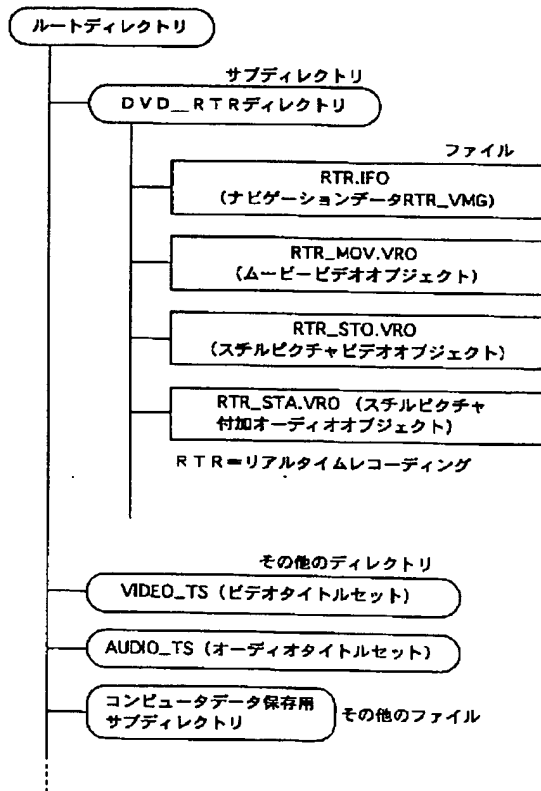 ルートディレクトリ
サブディレクトリ
DVD__RTRディレクトリ
ファイル
RTR.IFO
(ナビゲーションデータRTR_VMG)
RTR_MOV.VRO
(ムービービデオオブジェクト)
RTR_STO.VRO
(スチルピクチャビデオオブジェクト)
RTR_STA.VRO (スチルピクチャ
付加オーディオオブジェクト)
RTR=リアルタイムレコーディング
その他のディレクトリ
VIDEO_TS (ビデオタイトルセット)
AUDIO_TS (オーディオタイトルセット)
コンピュータデータ保存用
サブディレクトリ
その他のファイル